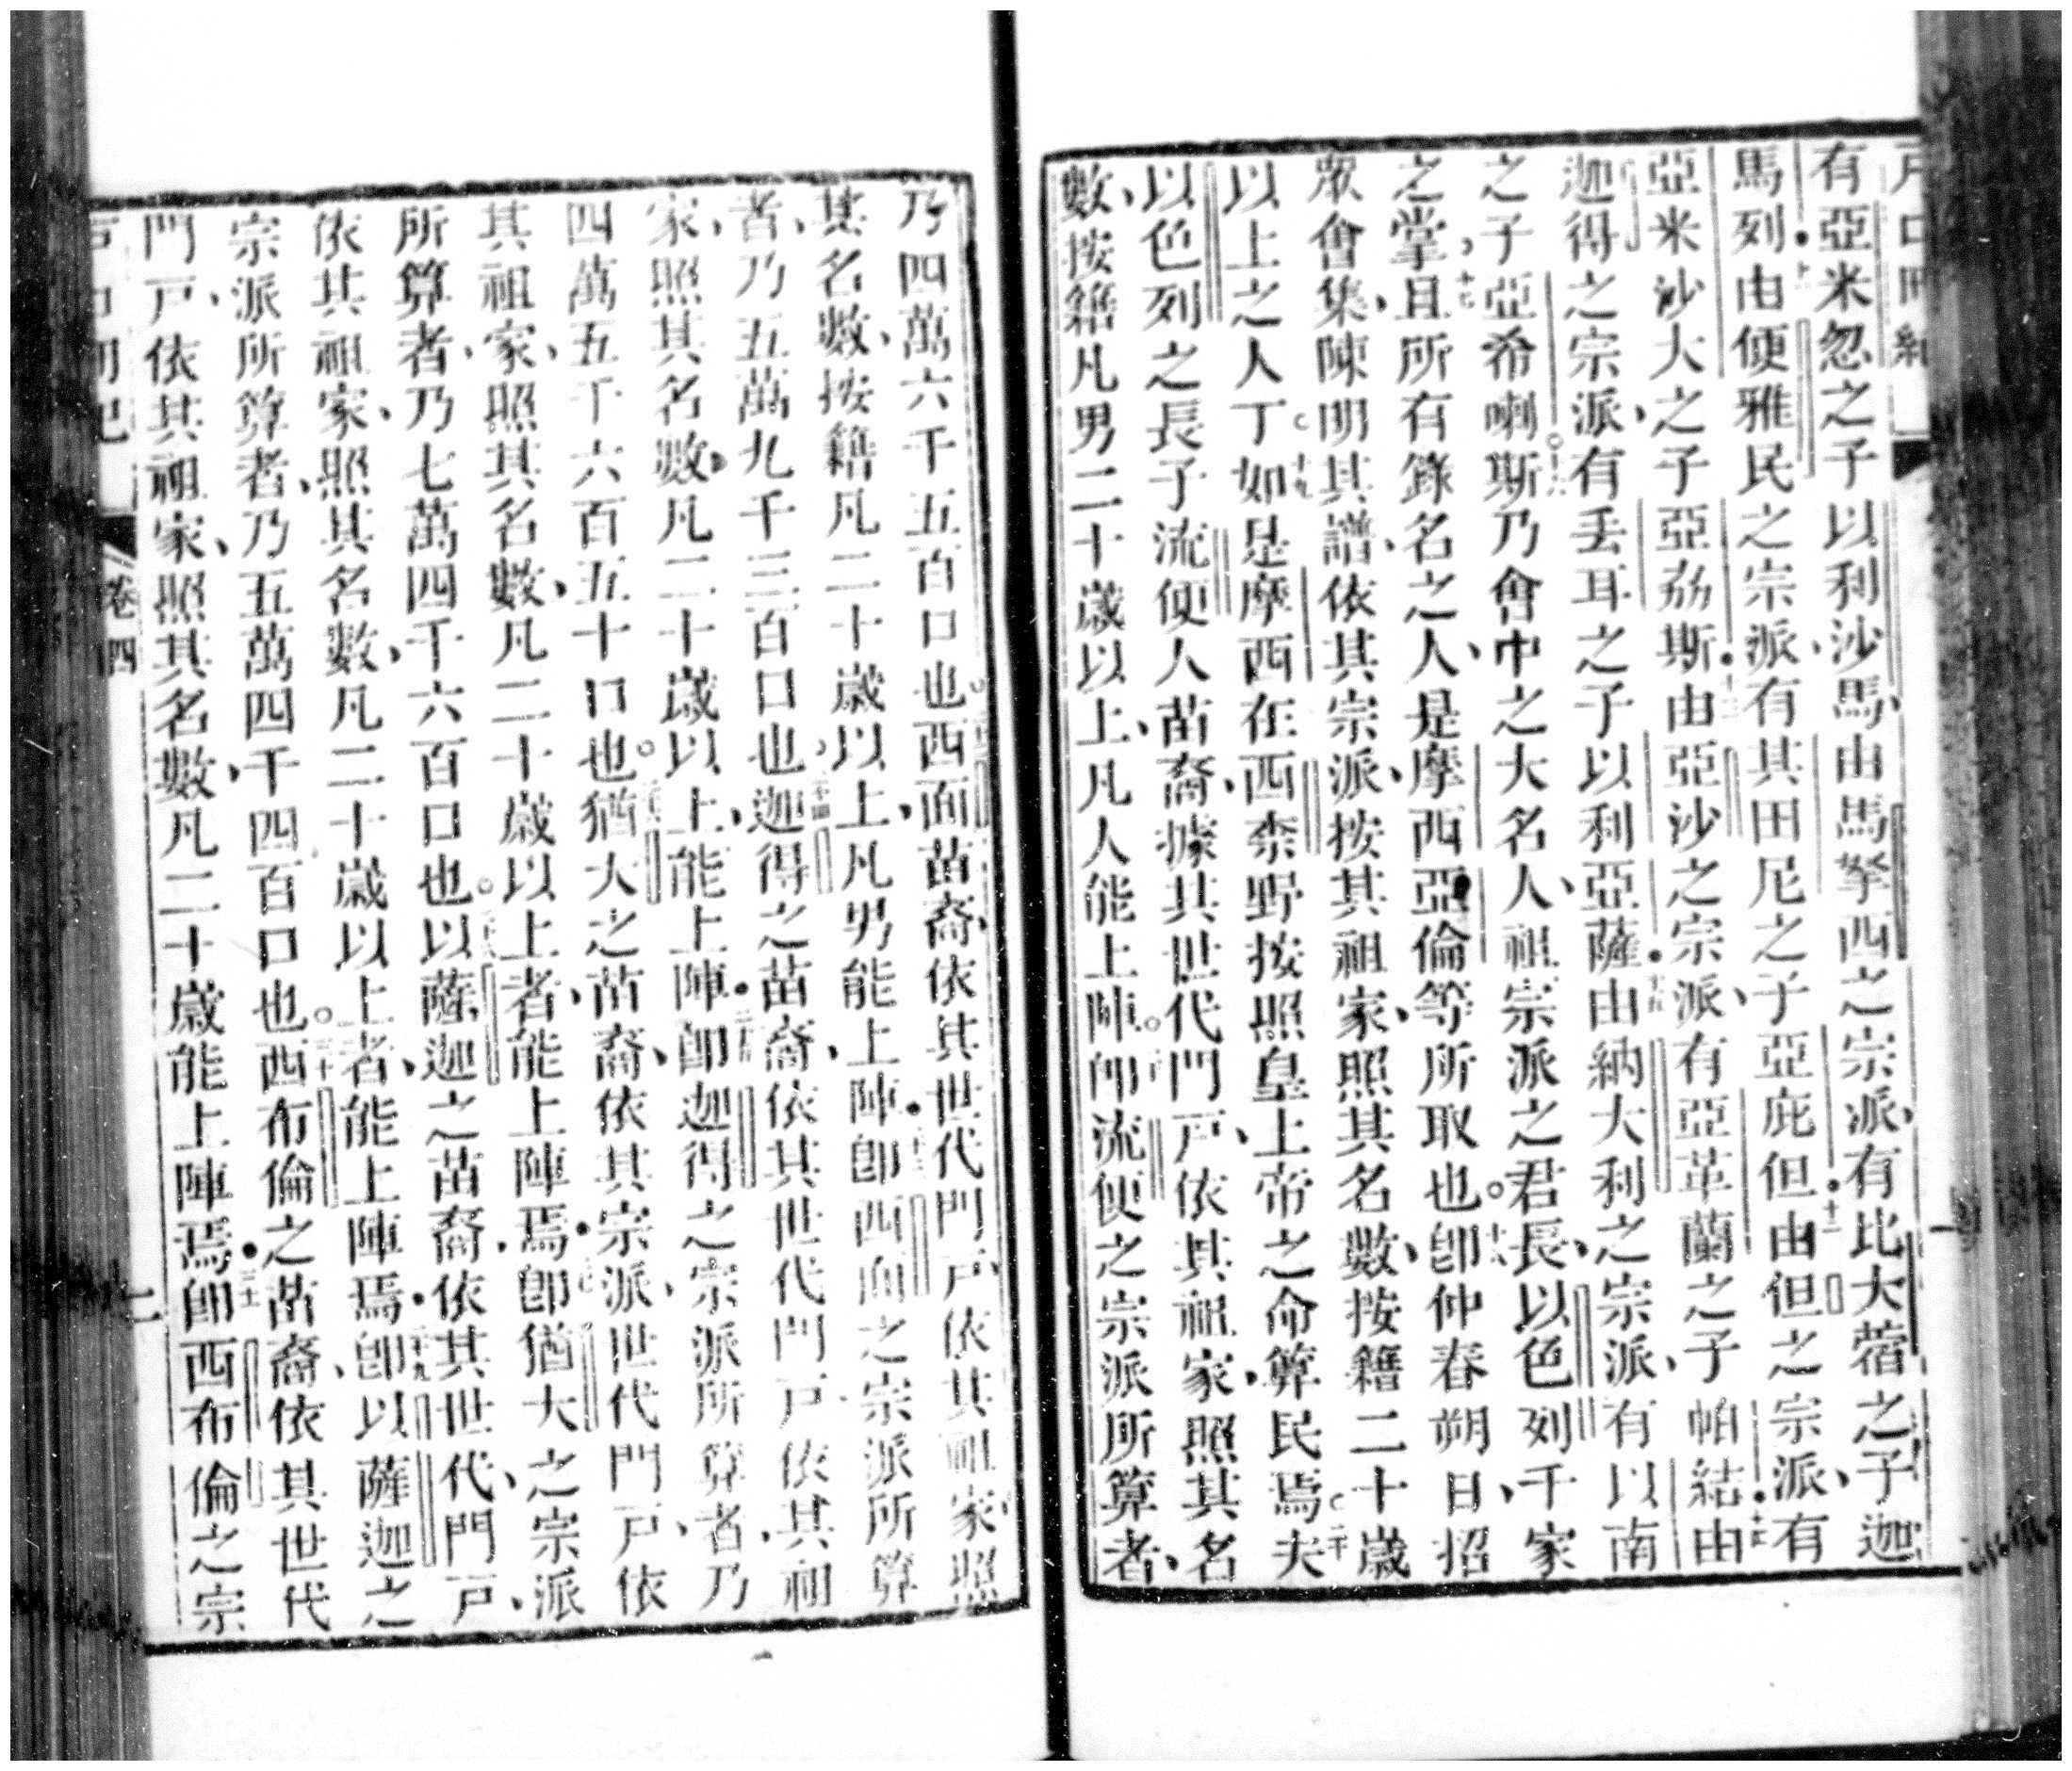 戶口冊紀
有亞米忽之子以利沙馬、由馬拏西之宗派、有比大蓿之子迦
馬列、十一由便雅民之宗派、有其田尼之子亞庇但、十二由但之宗派、有
亞米沙大之子亞劦斯、十三由亞沙之宗派、有亞革蘭之子帕結、十四由
迦得之宗派、有丟耳之子以利亞薩、十五由納大利之宗派、有以南
之子亞希喇斯。十六乃會中之大名人、祖宗派之君長、以色列千家
之掌、十七且所有錄名之人、是摩西亞倫等所取也。十八卽仲春朔日、招
眾會集、陳明其譜、依其宗派、按其祖家、照其名數、按籍二十歲
以上之人丁。十九如是摩西在西柰野按照皇上帝之命算民焉。二十夫
以色列之長子流便人苗裔、據其世代門戶、依其祖家、照其名
數、按籍凡男二十歲以上、凡人能上陣。卽流便之宗派所算者、
乃四萬六千五百口也。西面苗裔、依其世代門戶、依其祖家、照
其名數、按籍凡二十歲以上、凡男能上陣。卽西面之宗派所算
者、乃五萬九千三百口也。二十四迦得之苗裔、依其世代門戶、依其祖
家、照其名數、凡二十歲以上、能上陣。二十五卽迦得之宗派所算者、乃
四萬五千六百五十口也。猶大之苗裔、依其宗派、世代門戶、依
其祖家、照其名數、凡二十歲以上者、能上陣焉。二十七卽猶大之宗派
所算者、乃七萬四千六百口也。二十八以薩迦之苗裔、依其世代門戶、
依其祖家、照其名數、凡二十歲以上者、能上陣焉。二十九卽以薩迦之
宗派所算者、乃五萬四千四百口也。三十西布倫之苗裔、依其世代
門戶、依其祖家、照其名數、凡二十歲能上陣焉。三十一卽西布倫之宗
戶口冊紀 卷四 二